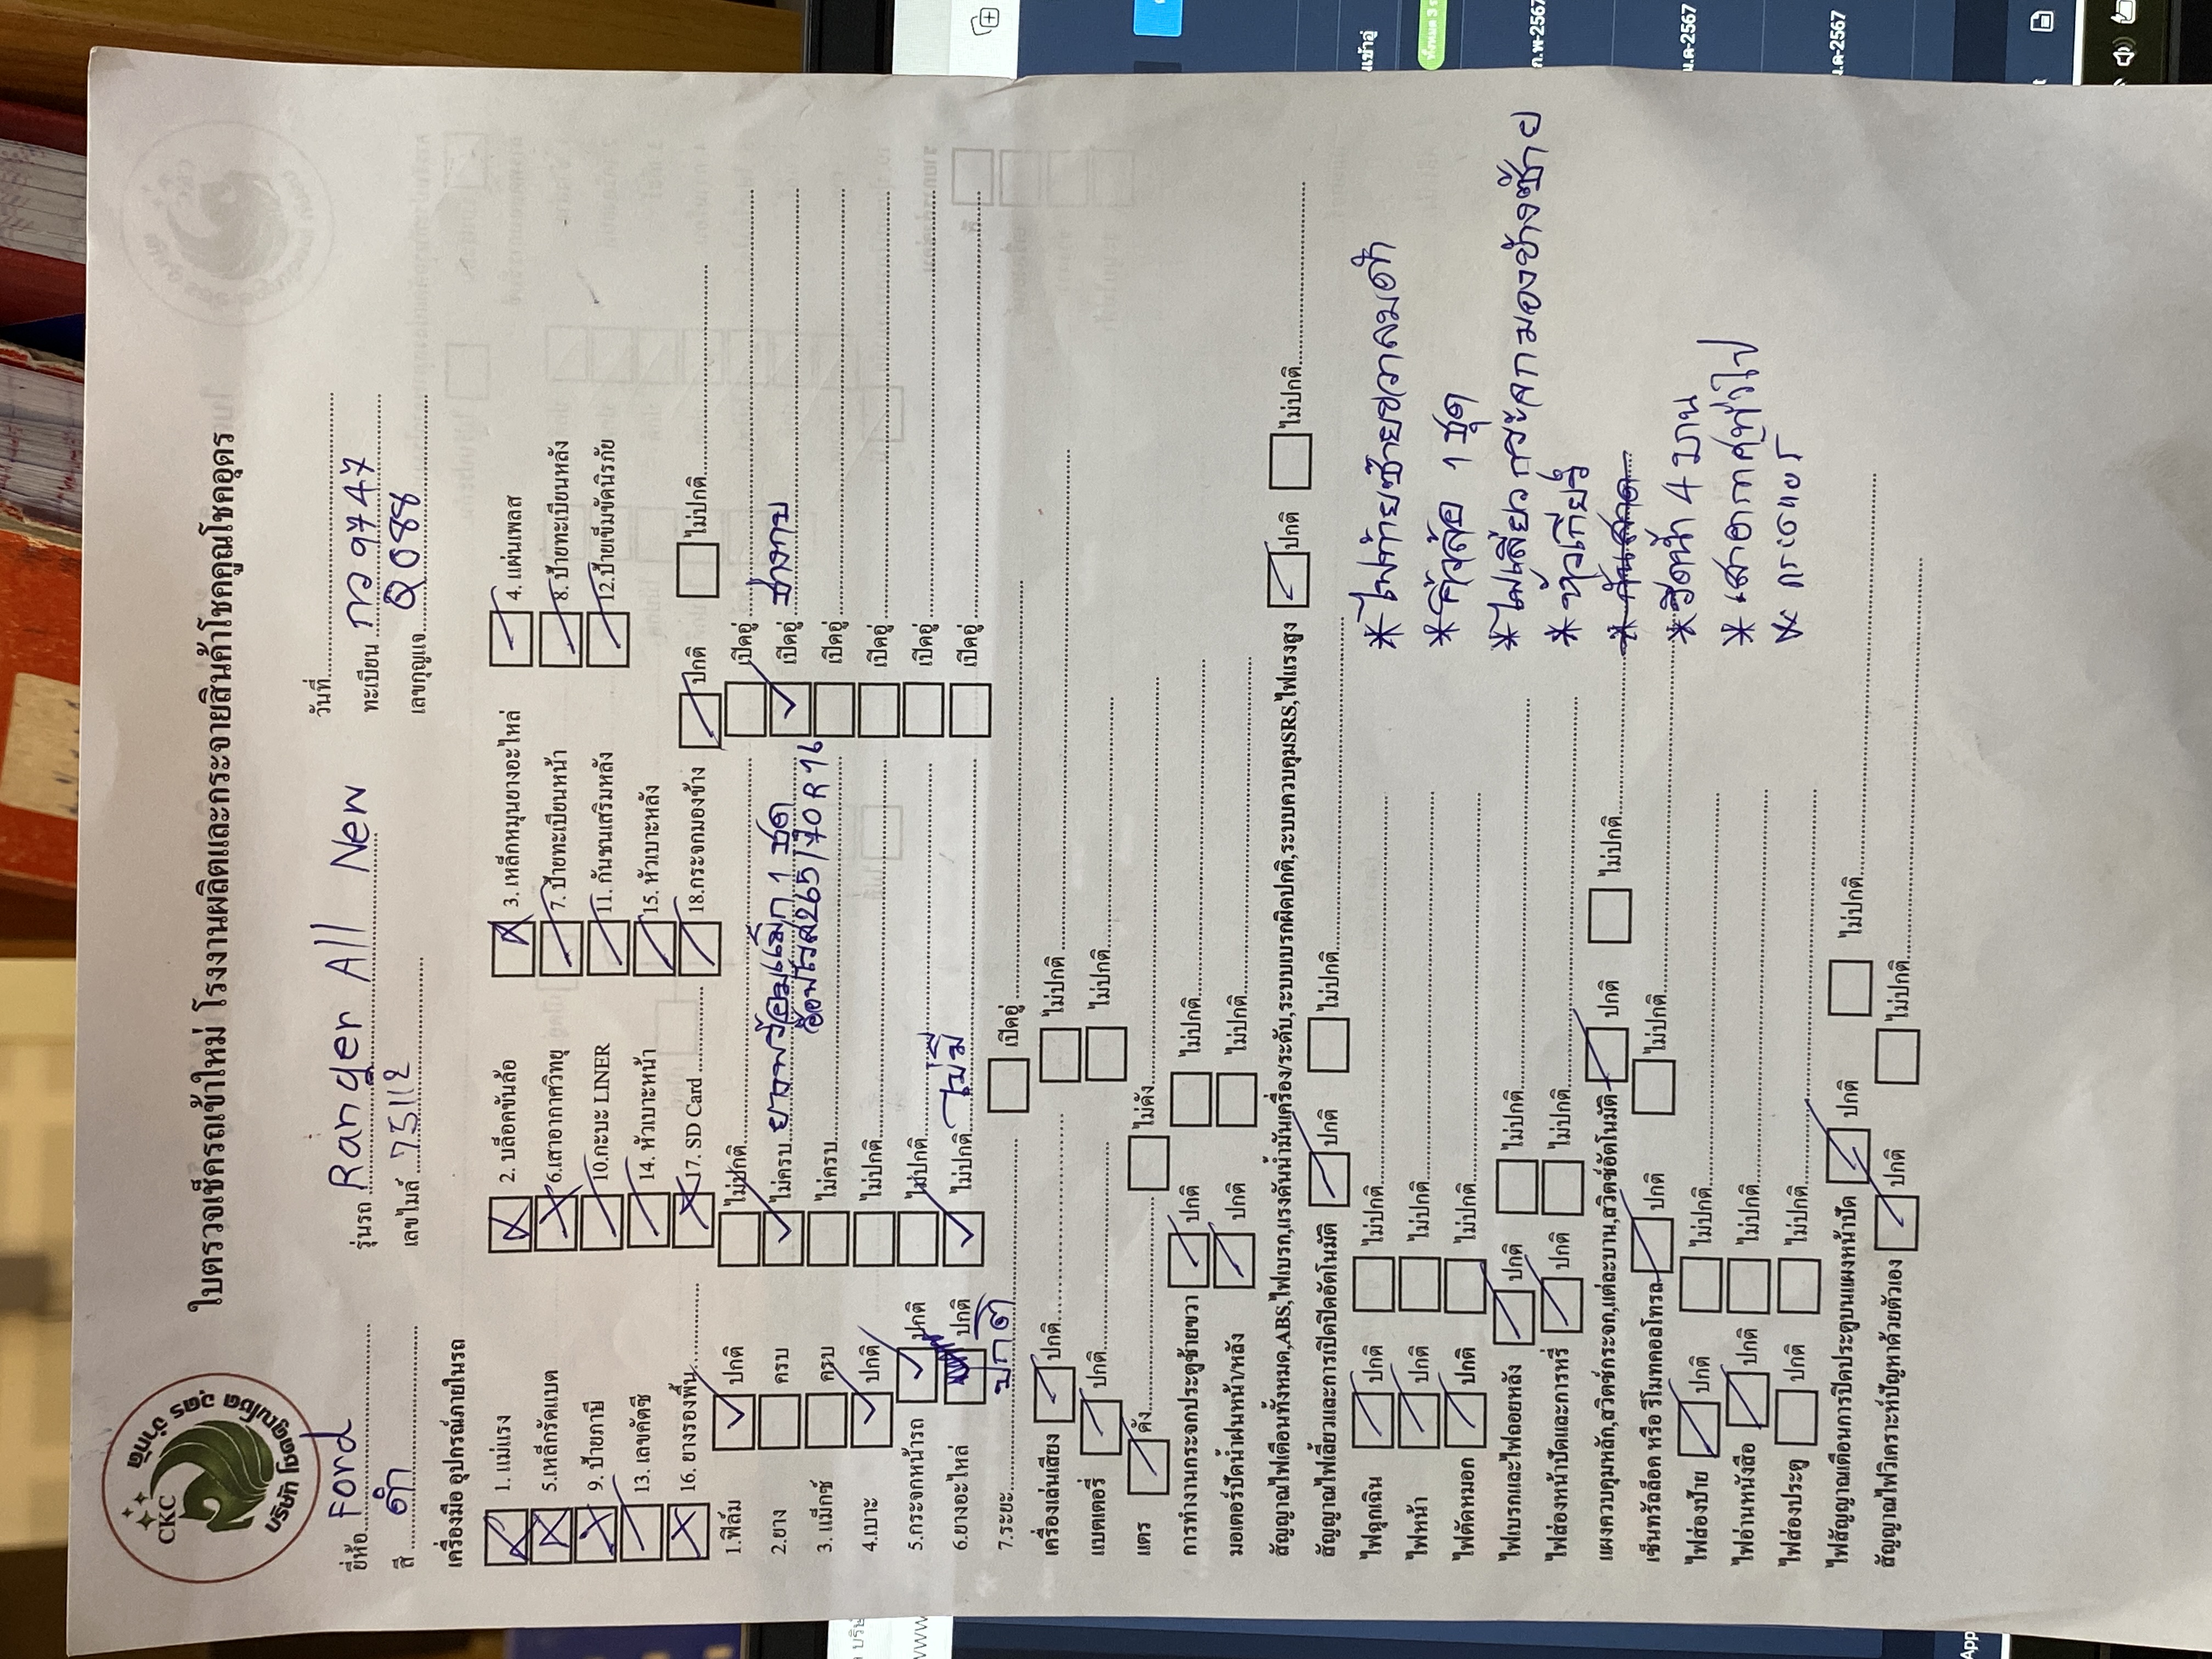 ใบตรวจเช็ครถเข้าใหม่ โรงงานผลิตและกระจายสินค้าโชคคูณโชคอุดร
CKC
บริษัท โชคคูณโชค อุดร จำกัด
วันที่
ยี่ห้อ Ford รุ่นรถ Ranger All New ทะเบียน กว 9747
สี ดำ เลขไมล์ 75112 เลขกุญแจ Q088
เครื่องมือ อุปกรณ์ภายในรถ
1. แม่แรง 2. บล็อคขันล้อ 3. เหล็กหมุนยางอะไหล่ 4. แผ่นเพลส
5.เหล็กรัดแบต 6.เสาอากาศวิทยุ 7. ป้ายทะเบียนหน้า 8. ป้ายทะเบียนหลัง
9. ป้ายภาษี 10.กะบะ LINER 11. กันชนเสริมหลัง 12.ป้ายเข็มขัดนิรภัย
13. เลขคัตซี 14. หัวเบาะหน้า 15. หัวเบาะหลัง
16. ยางรองพื้น 17. SD Card 18.กระจกมองข้าง ปกติ ไม่ปกติ
1.ฟิล์ม ปกติ ไม่ปกติ เบิคอู่
2.ยาง ครบ ไม่ครบ ยางพร้อมแม็ก 1 ชุด เบิคอู่ ช่างกาบ
265/70R16
3. แม็กซ์ ครบ ไม่ครบ เบิคอู่
4.เบาะ ปกติ ไม่ปกติ เบิคอู่
5.กระจกหน้ารถ ปกติ ไม่ปกติ เบิคอู่
6.ยางอะไหล่ ปกติ ไม่ปกติ ไม่มี เบิคอู่
7.ระยะ ปกติ เบิคอู่
เครื่องเล่นเสียง ปกติ ไม่ปกติ
แบตเตอรี่ ปกติ ไม่ปกติ
แตร ดัง ไม่ดัง
การทำงานกระจกประตูซ้ายขวา ปกติ ไม่ปกติ
มอเตอร์ปัดน้ำฝนหน้า/หลัง ปกติ ไม่ปกติ
สัญญาณไฟเตือนทั้งหมด,ABS,ไฟเบรก,แรงดันน้ำมันเครื่อง/ระดับ,ระบบเบรกผิดปกติ,ระบบควบคุมSRS,ไฟแรงสูง ปกติ ไม่ปกติ
สัญญาณไฟเลี้ยวและการเปิดปิดอัตโนมัติ ปกติ ไม่ปกติ
ไฟฉุกเฉิน ปกติ ไม่ปกติ
ไฟหน้า ปกติ ไม่ปกติ
ไฟตัดหมอก ปกติ ไม่ปกติ
ไฟเบรกและไฟถอยหลัง ปกติ ไม่ปกติ
ไฟส่องหน้าปัดและการหรี่ ปกติ ไม่ปกติ
แผงควบคุมหลัก,สวิตช์กระจก,แต่ละบาน,สวิตช์อัตโนมัติ ปกติ ไม่ปกติ
เซ็นทรัลล็อค หรือ รีโมทคอลโทรล ปกติ ไม่ปกติ
ไฟส่องป้าย ปกติ ไม่ปกติ
ไฟอ่านหนังสือ ปกติ ไม่ปกติ
ไฟส่องประตู ปกติ ไม่ปกติ
ไฟสัญญาณเตือนการปิดประตูบนแผงหน้าปัด ปกติ ไม่ปกติ
สัญญาณไฟวิเคราะห์ปัญหาด้วยตัวเอง ปกติ ไม่ปกติ
* ไฟท้ายซ้ายขวาลมดำ
* คิ้วล้อ 1 ชุด
* ไฟเลี้ยวกระจกมองข้างซ้าย
* หัวเกียร์
* รีดน้ำ 4 บาน
* เสาอากาศทั่วไป
* การ์เตอร์
ก.พ-2567
ม.ค-2567
ม.ค-2567
App